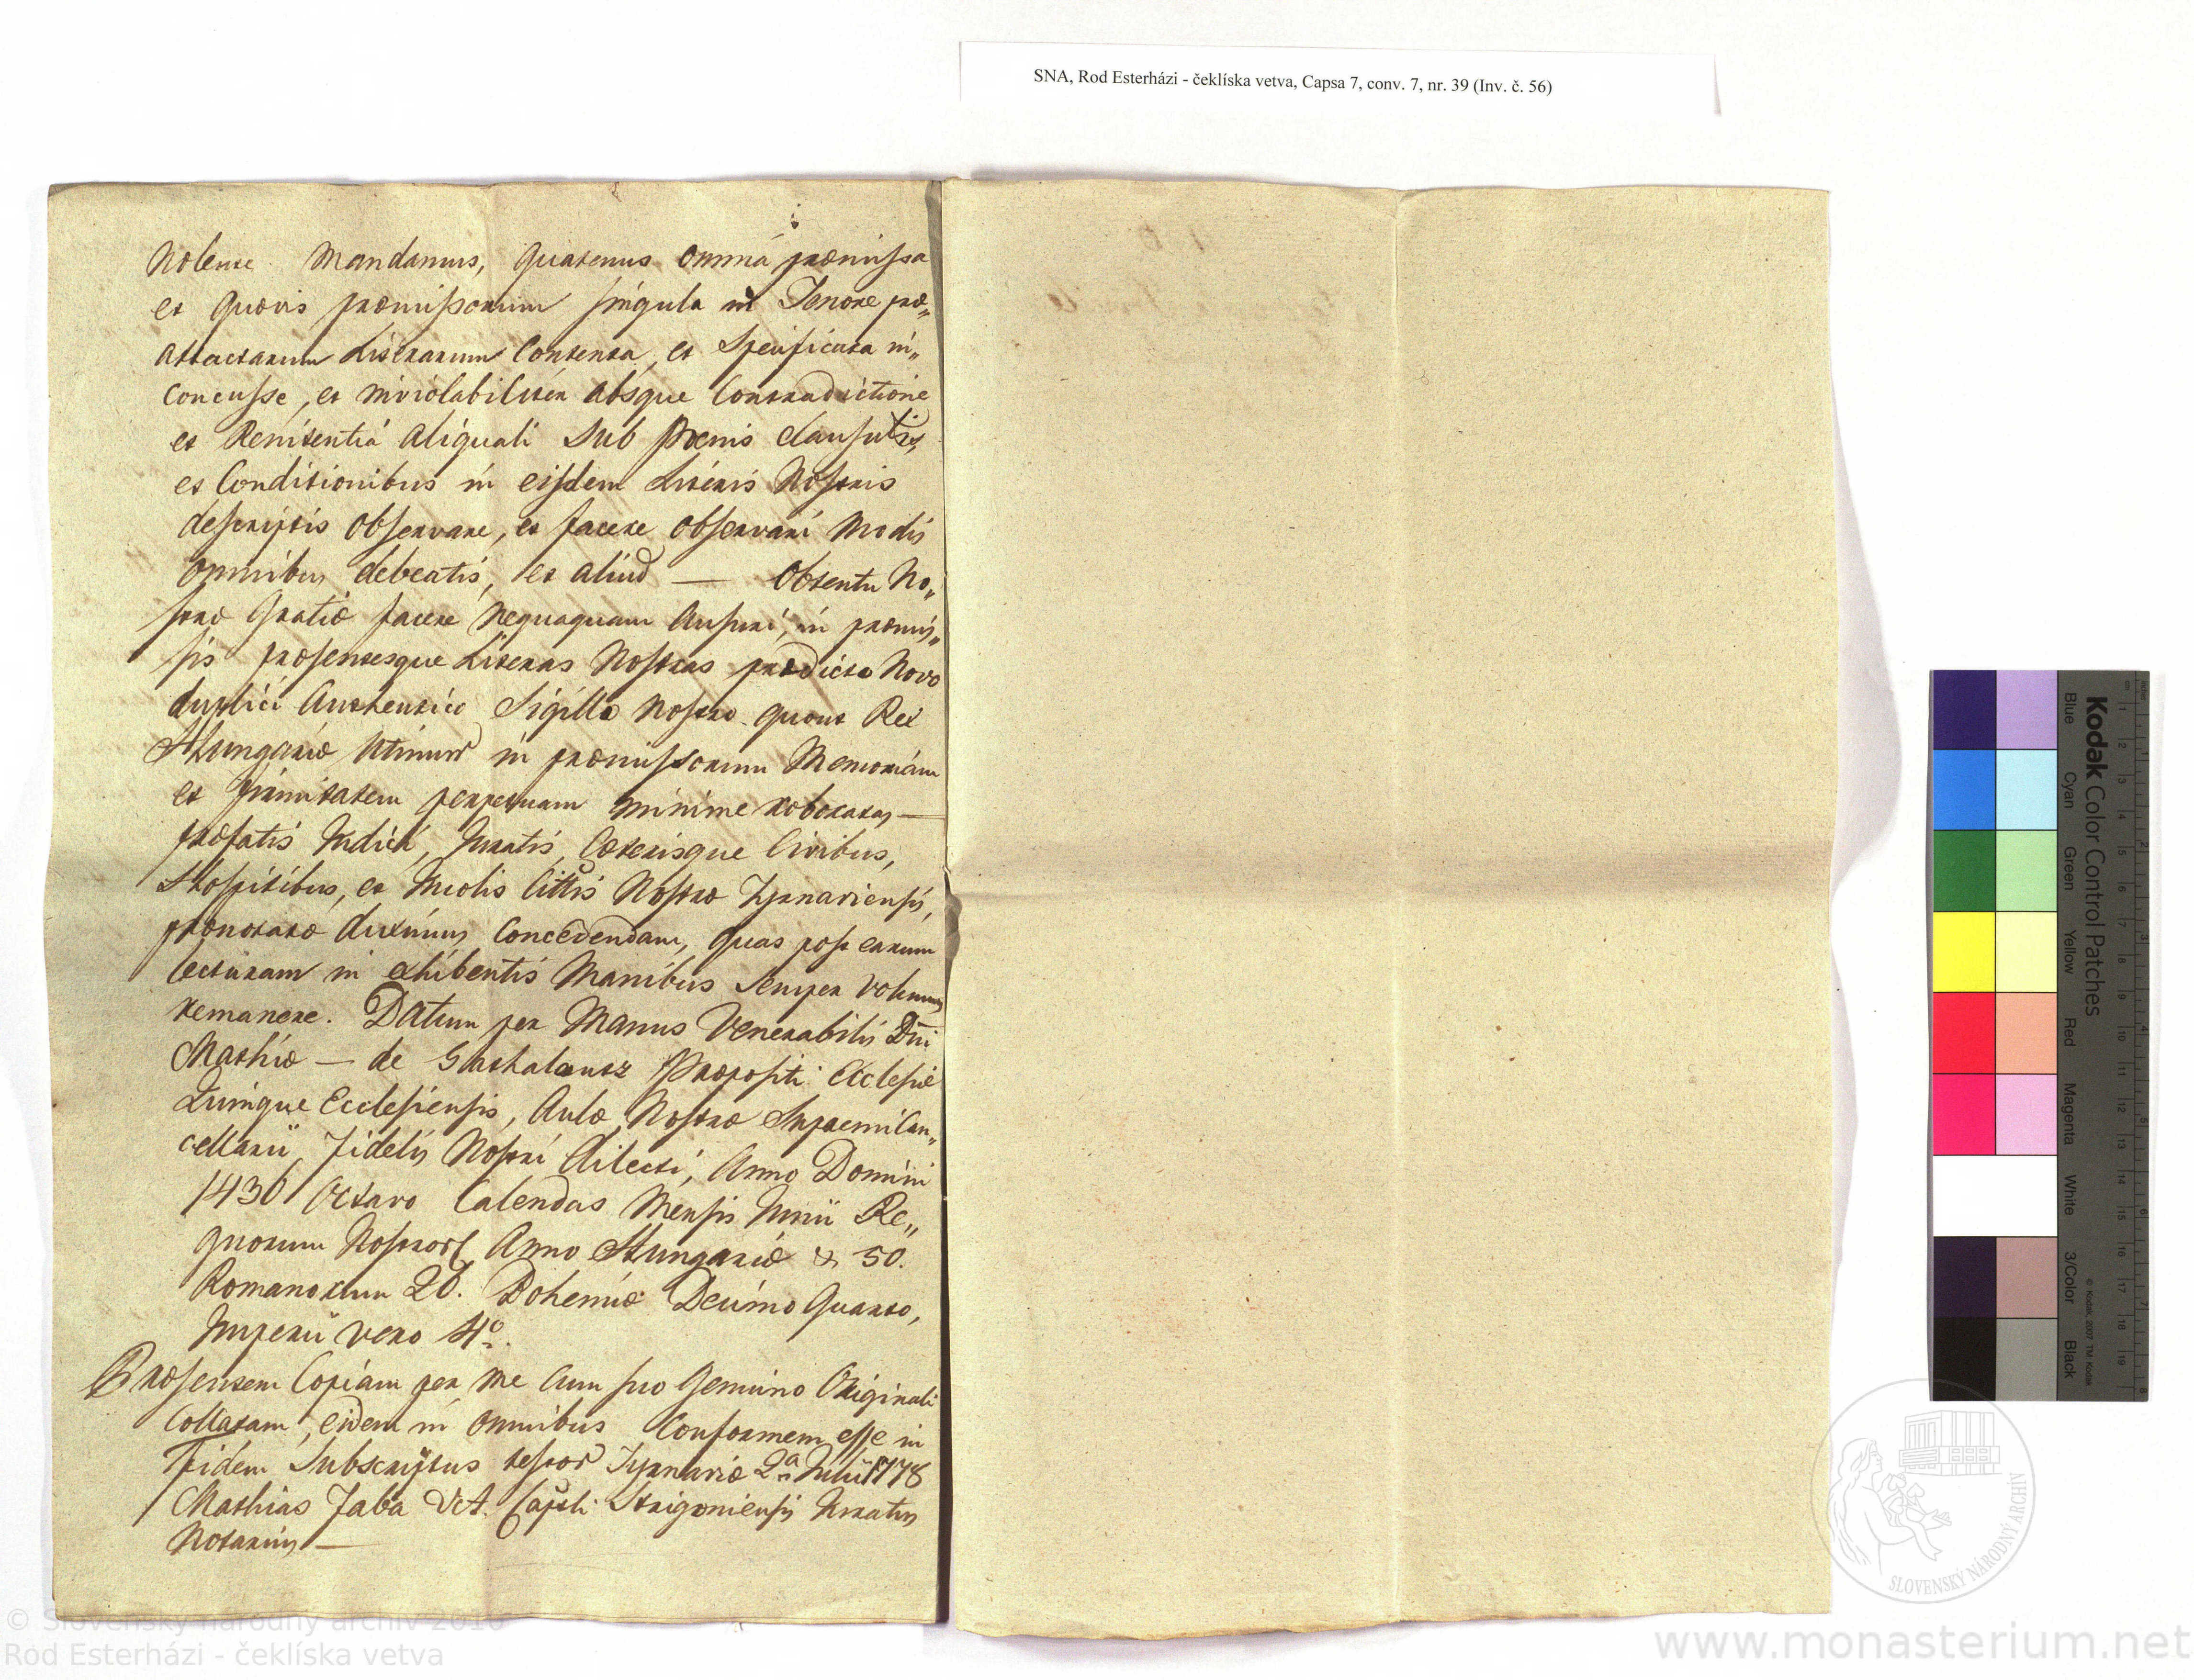 SNA, Rod Esterházi - čeklíska vetva, Capsa 7, conv. 7, nr. 39 (Inv. č. 56)
Mandamus, quatenus omnia præmissa
et quævis præmissorum singula in Tenore præ„
attactarum Literarum Contenta, et Specificata in„
concusse, et inviolabiliter absque Contradictione
et Renitentia aliquali sub Pœnis clausulis,
et Conditionibus in eisdem Literis Nostris
descriptis observare, et facere observari modis
omnibus debeatis, et aliud — obtentu No„
stræ Gratiæ facere nequaquam ausuri, in præmis„
sis præsentesque Literas Nostras prædicto Novo
duplici Authentico Sigillo Nostro quout Rex
Hungariæ utimur in præmissorum Memoriam
et firmitatem perpetuam minime roboratas —
præfatis Judici, Juratis, Cæterisque Civibus,
Hospitibus, et Incolis Cittis Nostræ Tyrnaviensis,
prænotatæ duximus Concedendam, quas post earum
lecturam in exhibentis Manibus semper volumus
remanere. Datum per Manus Venerabilis Dni
Mathiæ — de Gathalowcz Præpositi Ecclesiæ
Quinque Ecclesiensis, Aulæ Nostræ Supremi Can„
cellarii, Fidelis Nostri dilecti, Anno Domini
1436 Octavo Calendas Mensis Junii Re„
gnorum Nostrorf Anno Hungariæ & 50.
Romanorum 26. Bohemiæ Decimo Quarto,
Imperii vero 4º.
Præsentem Copiam per me cum suo Genuino Originali
Collatam, eidem in omnibus Conformem esse in
Fidem Subscriptus testor Tyrnaviæ 2ª Julii 1778
Mathias Jaba Vet. Capli Strigoniensis Juratus
Notarius —
Kodak Color Control Patches
Blue Cyan Green Yellow Red Magenta White 3/Color Black
© Kodak, 2007 TM: Kodak
SLOVENSKÝ NÁRODNÝ ARCHÍV
© Slovenský národný archív 2010
Rod Esterházi - čeklíska vetva
www.monasterium.net